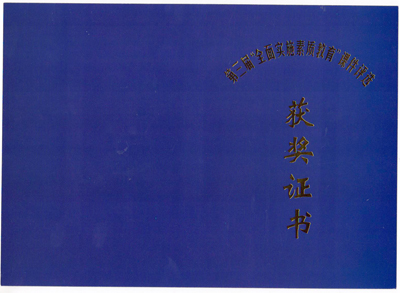 第二届"全面实施素质教育"教科评选
获奖证书